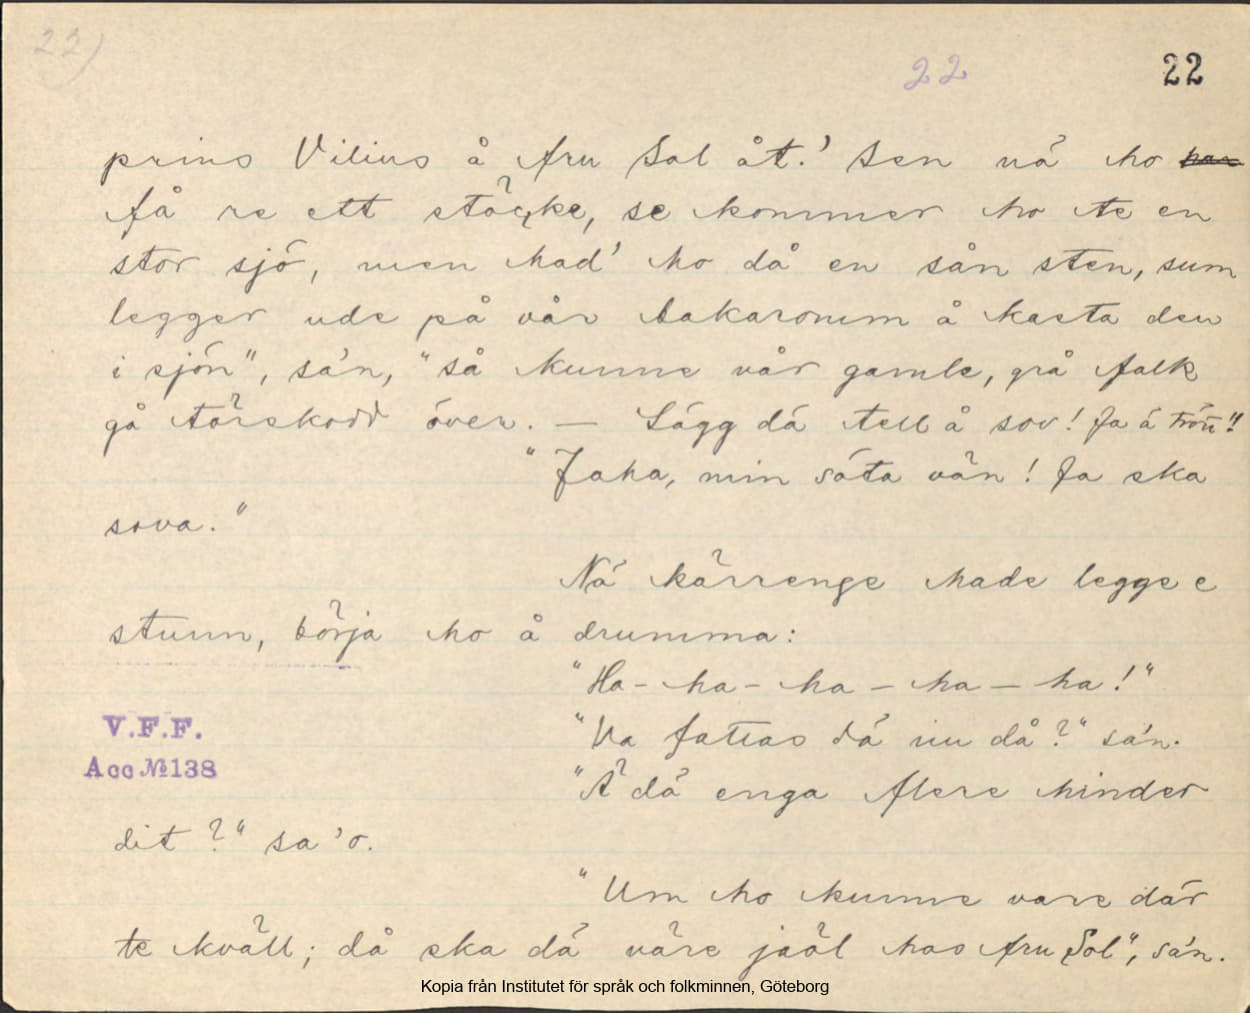 22)
22 22
prins Vilius å fru Sol åt.' Sen nå ho
få re ett stöcke, se kommer ho te en
stor sjö, men had' ho då en sån sten, sum
legger ude på vår bakaronum å kasta den
i sjön", sa'n, "så kunne vår gamle, grå falk
gå törskodd över. — Lägg dä tell å sov! Ja ä trött!"
"Jaha, min söta vän! Ja ska
sova."
Nä kärrenge hade legge e
stunn, börja ho å drumma:
"Ha - ha - ha - ha - ha!"
V.F.F.
"Va fattas dä nu då?" sa'n.
Acc №138
"Ä dä enga flere hinder
dit?" sa 'o.
"Um ho kunne vare där
te kväll; då ska dä väre jäöl hos fru Sol", sa'n.
Kopia från Institutet för språk och folkminnen, Göteborg